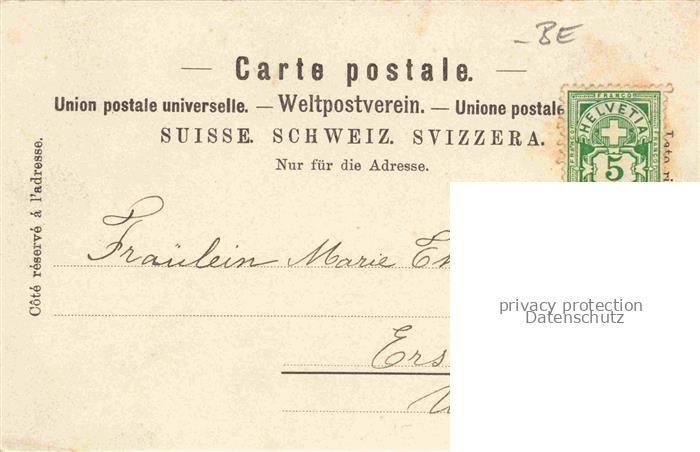 BE
— Carte postale. —
Union postale universelle. — Weltpostverein. — Unione postale
SUISSE. SCHWEIZ. SVIZZERA.
Nur für die Adresse.
Côté réservé á l'adresse.
FRANCO
HELVETIA
FRANCO
FRANCO
5
Lato
Fräulein Marie
privacy protection
Datenschutz
Ers